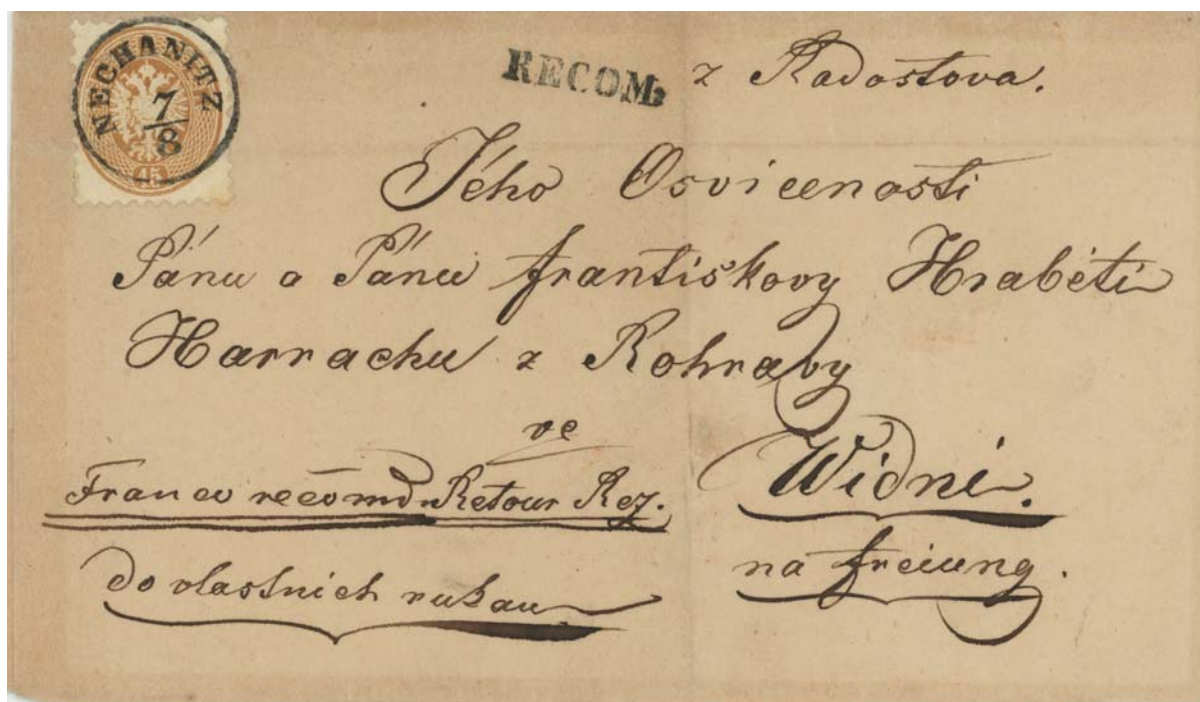 NECHANITZ
7/8
15
RECOM.
z Radostova.
Jeho Osvícenosti
Pánu a Pánu františkovy Hraběti
Harrachu z Rohravy
ve
Widni.
Franco recomd. Retour Rez.
na freiung.
do vlastních rukau